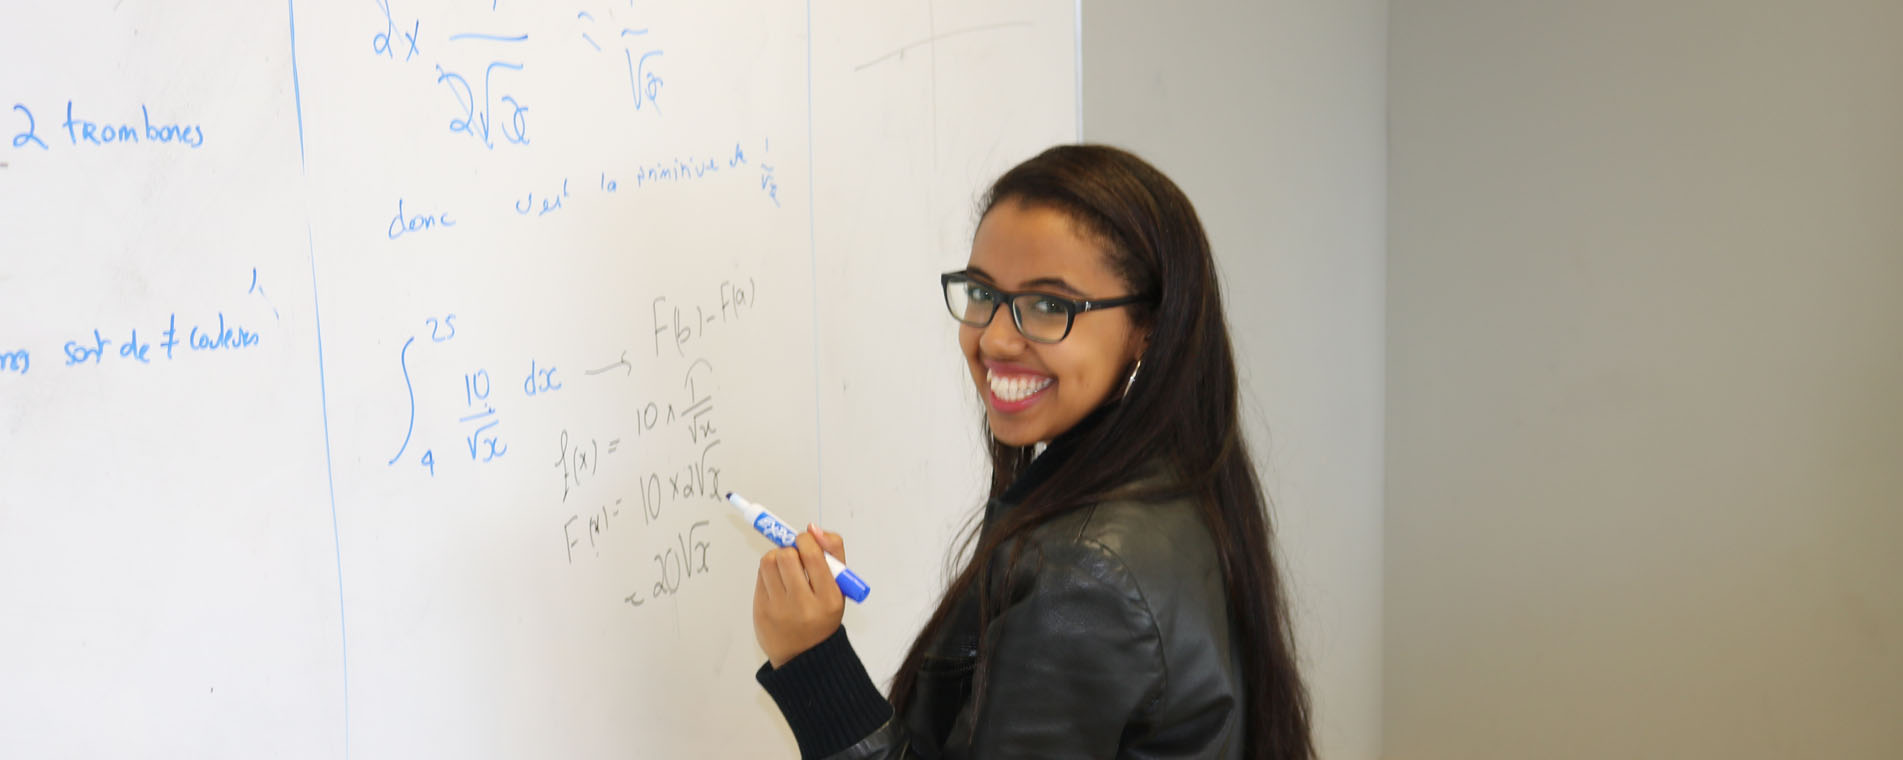 2 trombones
sont de ≠ couleurs
2x 1/(2√x) = 1/√x
donc c'est la primitive de 1/√x
∫₄²⁵ 10/√x dx → F(b) - F(a)
f(x) = 10 × 1/√x
F(x) = 10 × 2√x
= 20√x
EXPO